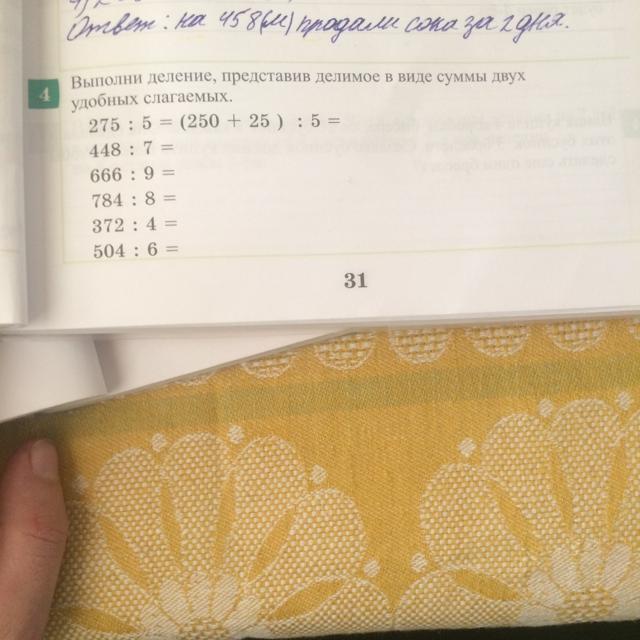 Ответ: на 458(м) продали сока за 2 дня.
4
Выполни деление, представив делимое в виде суммы двух
удобных слагаемых.
275 : 5 = (250 + 25 ) : 5 =
448 : 7 =
666 : 9 =
784 : 8 =
372 : 4 =
504 : 6 =
31